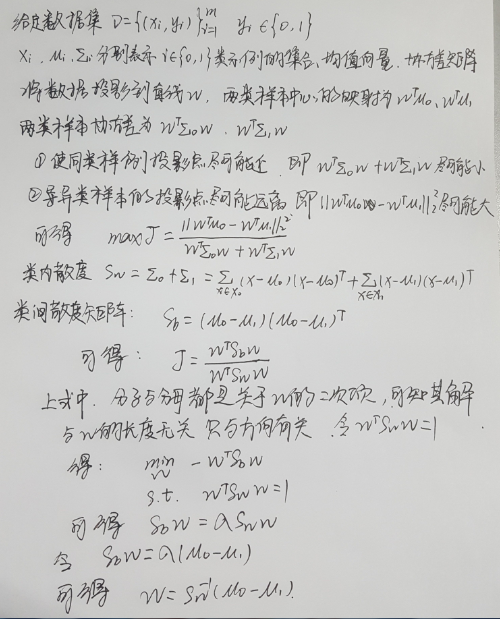 给定数据集 D={(xi, yi)}ᵐᵢ₌₁ yi∈{0,1}
Xi、μi、Σi 分别表示 i∈{0,1} 类示例的集合、均值向量、协方差矩阵
将数据投影到直线w, 两类样本中心的映射为 wᵀμ0、wᵀμ1
两类样本协方差为 wᵀΣ0w、wᵀΣ1w
① 使同类样例投影点尽可能近 即 wᵀΣ0w + wᵀΣ1w 尽可能小
② 异类样本的投影点尽可能远离 即 ||wᵀμ0 - wᵀμ1||₂² 尽可能大
可得 max J = ||wᵀμ0 - wᵀμ1||₂² / (wᵀΣ0w + wᵀΣ1w)
类内散度 Sw = Σ0 + Σ1 = Σ_{x∈X0} (x-μ0)(x-μ0)ᵀ + Σ_{x∈X1} (x-μ1)(x-μ1)ᵀ
类间散度矩阵: Sb = (μ0-μ1)(μ0-μ1)ᵀ
可得: J = wᵀSbw / wᵀSww
上式中, 分子与分母都是关于w的二次项, 可知其解
与w的长度无关 只与方向有关 令 wᵀSww=1
得: min_w - wᵀSbw
s.t. wᵀSww=1
可得 Sbw = λSww
令 Sbw = λ(μ0-μ1)
可得 w = Sw⁻¹(μ0-μ1).